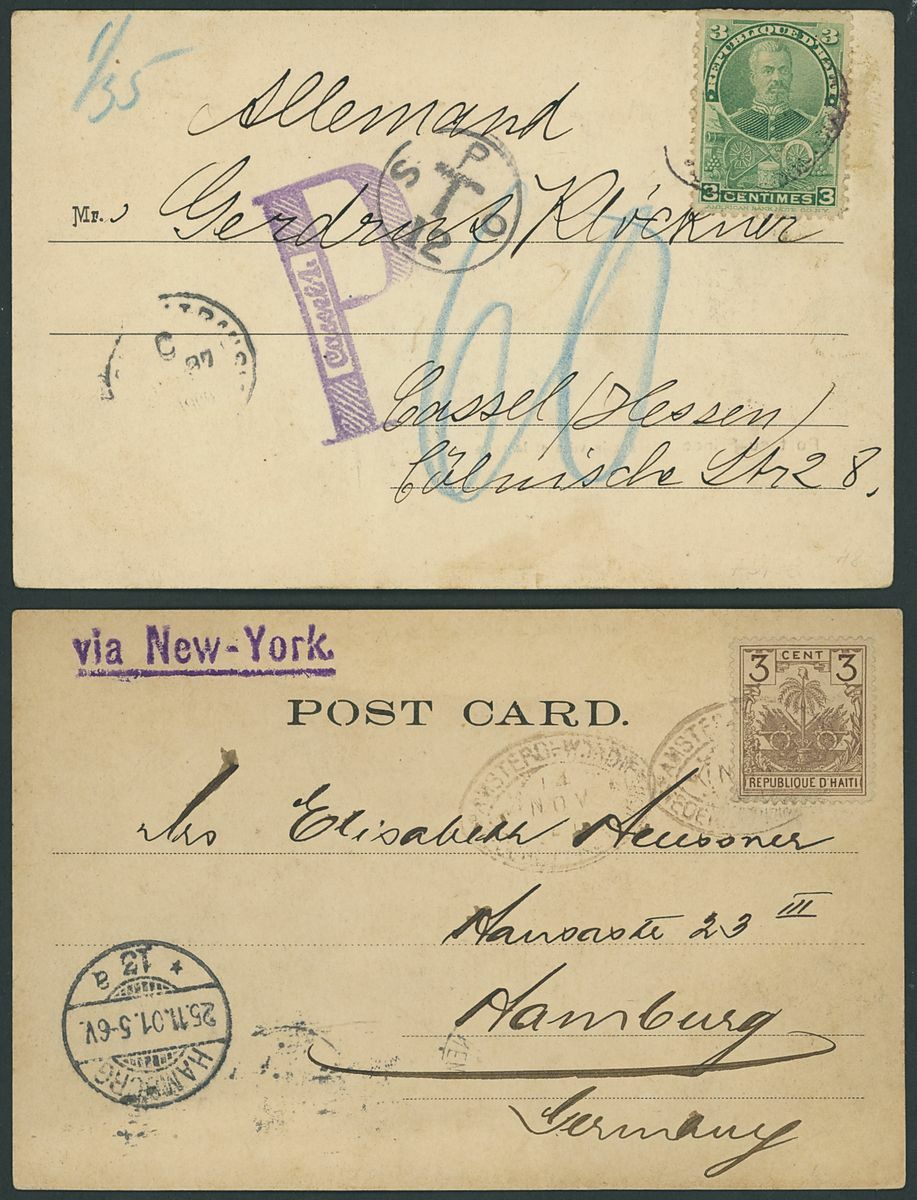 1/35
3 3
REPUBLIQUE D'HAITI
3 CENTIMES 3
AMERICAN BANK NOTE CO. N.Y.
Allemand
S P O
T
12
Mr. Gerdruts Klöckner
P
Cassel.
60
Cassel (Hessen)
Cölnische Str 28.
via New-York.
3 CENT 3
REPUBLIQUE D'HAITI
POST CARD.
14
NOV
Mrs Elisabeth Heussner
Hansastr 23 III
Hamburg
Germany
HAMBURG
25.11.01.5-6V.
* 13 a